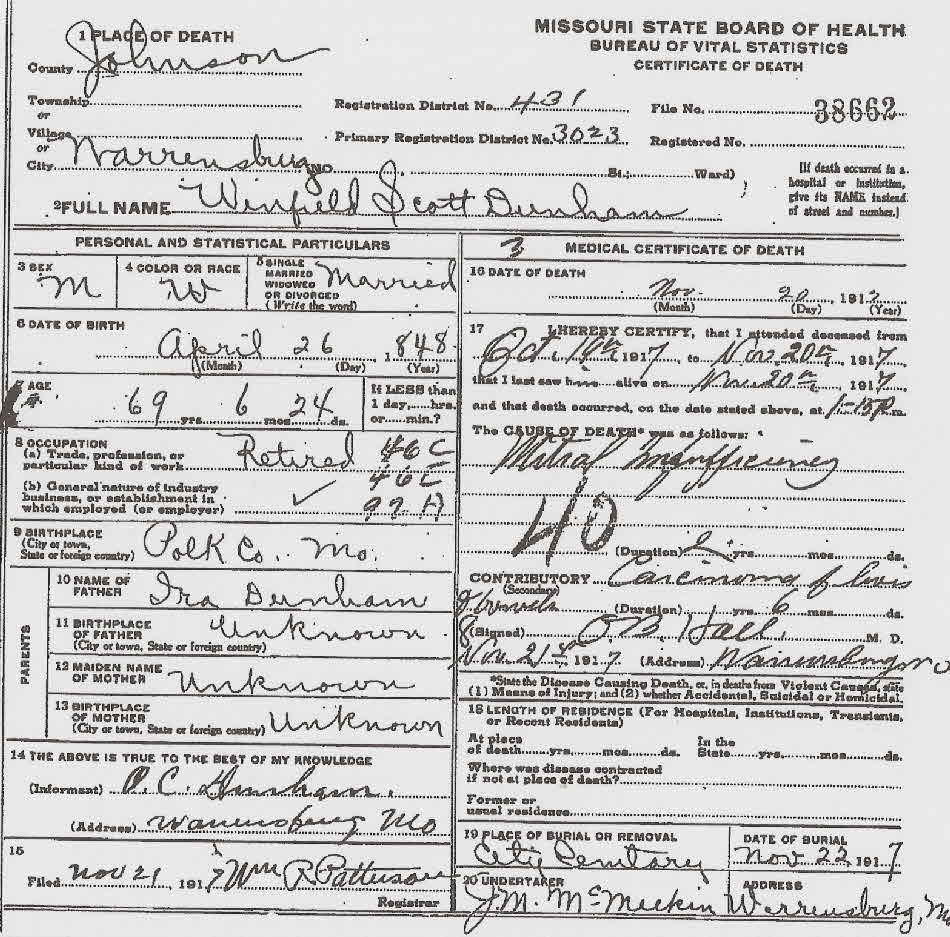 MISSOURI STATE BOARD OF HEALTH
BUREAU OF VITAL STATISTICS
CERTIFICATE OF DEATH
1 PLACE OF DEATH
County Johnson
Township
or
Village
or
City Warrensburg NO St.; Ward)
Registration District No. 431 File No. 38662
Primary Registration District No. 3023 Registered No.
[If death occurred in a
hospital or institution,
give its NAME instead
of street and number.]
2 FULL NAME Winfield Scott Dunham
PERSONAL AND STATISTICAL PARTICULARS
3 SEX M
4 COLOR OR RACE W
5 SINGLE
MARRIED
WIDOWED
OR DIVORCED
(Write the word)
Married
6 DATE OF BIRTH
April 26 1848
(Month) (Day) (Year)
7 AGE
69 yrs. 6 mos. 24 ds.
If LESS than
1 day, hrs.
or min.?
8 OCCUPATION
(a) Trade, profession, or
particular kind of work Retired 46C
46C
(b) General nature of industry
business, or establishment in
which employed (or employer) ✓ 92A
9 BIRTHPLACE
(City or town,
State or foreign country) Polk Co. Mo.
PARENTS
10 NAME OF
FATHER Ira Dunham
11 BIRTHPLACE
OF FATHER
(City or town, State or foreign country) Unknown
12 MAIDEN NAME
OF MOTHER Unknown
13 BIRTHPLACE
OF MOTHER
(City or town, State or foreign country) Unknown
14 THE ABOVE IS TRUE TO THE BEST OF MY KNOWLEDGE
(Informant) O. C. Dunham.
(Address) Warrensburg Mo
15
Filed Nov 21 1917 Wm R Patterson
Registrar
3 MEDICAL CERTIFICATE OF DEATH
16 DATE OF DEATH
Nov. 20, 1917
(Month) (Day) (Year)
17 I HEREBY CERTIFY, that I attended deceased from
Oct. 19th 1917, to Nov. 20th, 1917,
that I last saw him alive on Nov. 20th, 1917
and that death occurred, on the date stated above, at 1-15 P m.
The CAUSE OF DEATH* was as follows:
Mitral Insufficiency
40
(Duration) 2 yrs. mos. ds.
CONTRIBUTORY Carcinoma of
(Secondary)
(Duration) 1 yrs. 6 mos. ds.
(Signed) O.B. Hall, M. D.
Nov. 21st 1917 (Address) Warrensburg Mo
*State the Disease Causing Death, or, in deaths from Violent Causes, state
(1) Means of Injury; and (2) whether Accidental, Suicidal or Homicidal.
18 LENGTH OF RESIDENCE (For Hospitals, Institutions, Transients,
or Recent Residents)
At place
of death yrs. mos. ds.
In the
State yrs. mos. ds.
Where was disease contracted
if not at place of death?
Former or
usual residence
19 PLACE OF BURIAL OR REMOVAL
City Cemitary
DATE OF BURIAL
Nov 22 1917
20 UNDERTAKER
J.M. McMeekin
ADDRESS
Warrensburg, Mo